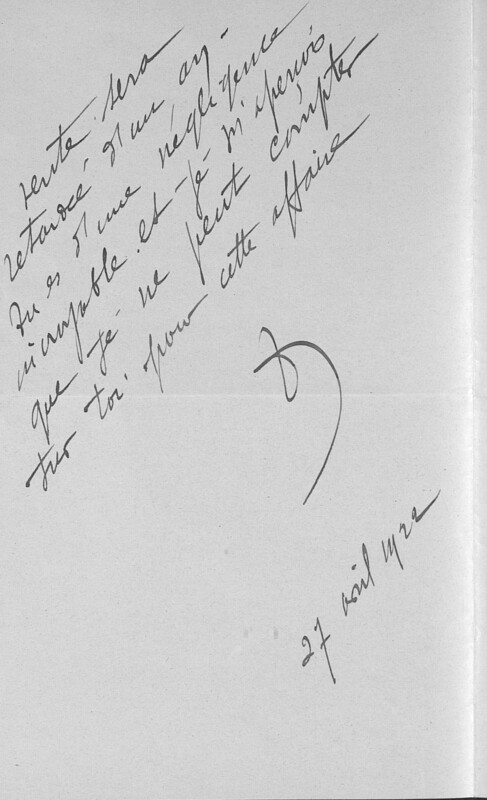 vente sera
retardée d'un an.
Tu es d'une négligence
incroyable et je m'aperçois
que je ne peut compter
sur toi pour cette affaire
27 avril 1922